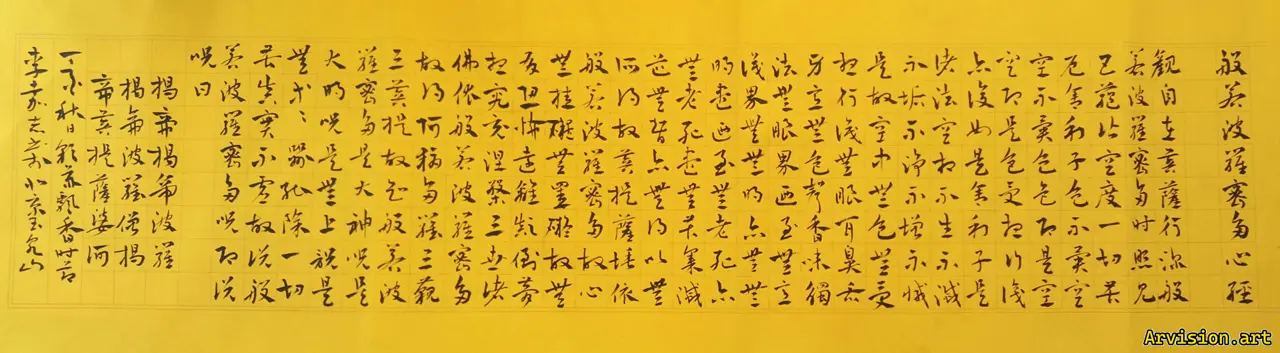 般若波羅蜜多心經
觀自在菩薩行深般
若波羅蜜多時照見
五蘊皆空度一切苦
厄舍利子色不異空
空不異色色即是空
空即是色受想行識
亦復如是舍利子是
諸法空相不生不滅
不垢不淨不增不減
是故空中無色無受
想行識無眼耳鼻舌
身意無色聲香味觸
法無眼界乃至無意
識界無無明亦無無
明盡乃至無老死亦
無老死盡無苦集滅
道無智亦無得以無
所得故菩提薩埵依
般若波羅蜜多故心
無罣礙無罣礙故無
有恐怖遠離顛倒夢
想究竟涅槃三世諸
佛依般若波羅蜜多
故得阿耨多羅三藐
三菩提故知般若波
羅蜜多是大神咒是
大明咒是無上咒是
無等〻咒能除一切
苦真實不虛故說般
若波羅蜜多咒即說
咒曰
揭帝揭帝波羅
揭帝波羅僧揭
帝菩提薩婆訶
秋日飄香時節
李志北京玉泉山
Arvision.art